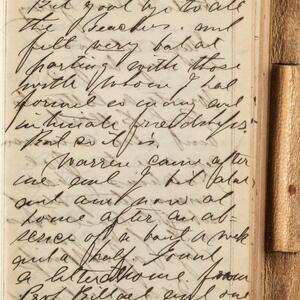 bid good bye to all
the Teachers and
felt very bad at
parting with those
with whom I had
formed so many and
intimate friendships.
But so it is.
Warren came after
me and I bid
and am now at
home after an ab-
sence of about a week
and a half. Found
a letter home from
Prof. and one